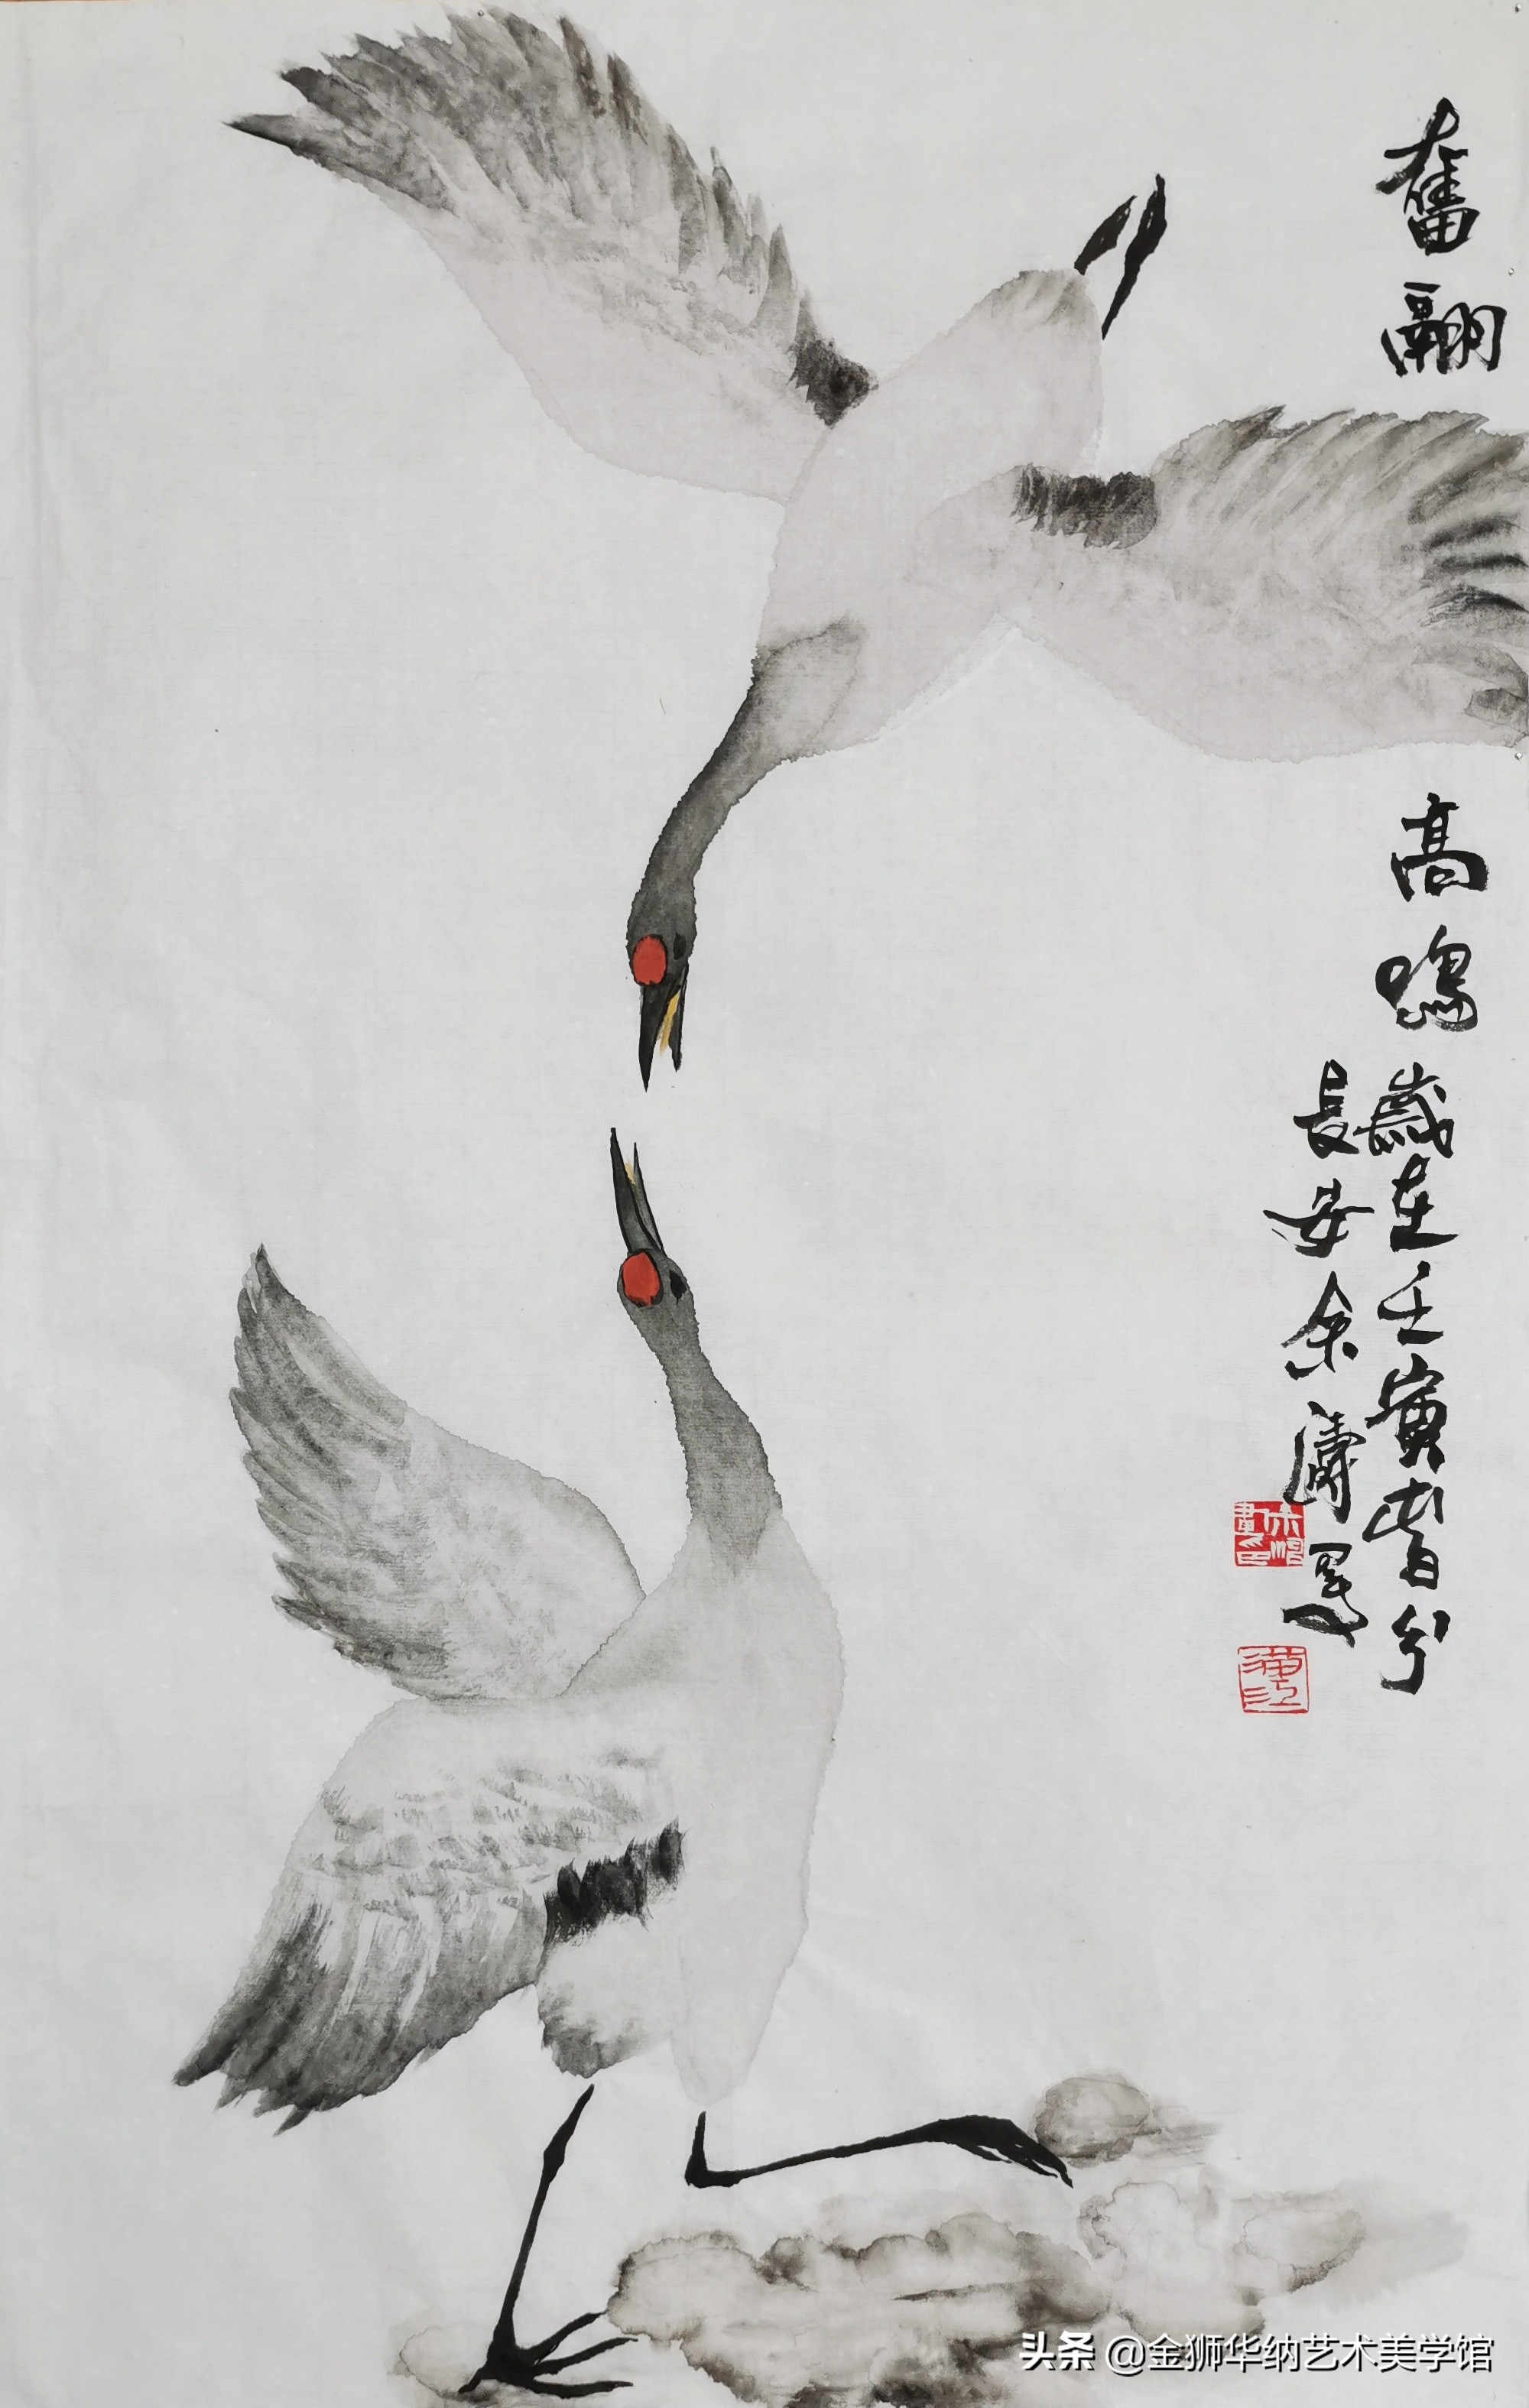 奮翮 高鳴 歲在壬寅旾兮
長安余濤寫
头条 @金狮华纳艺术美学馆